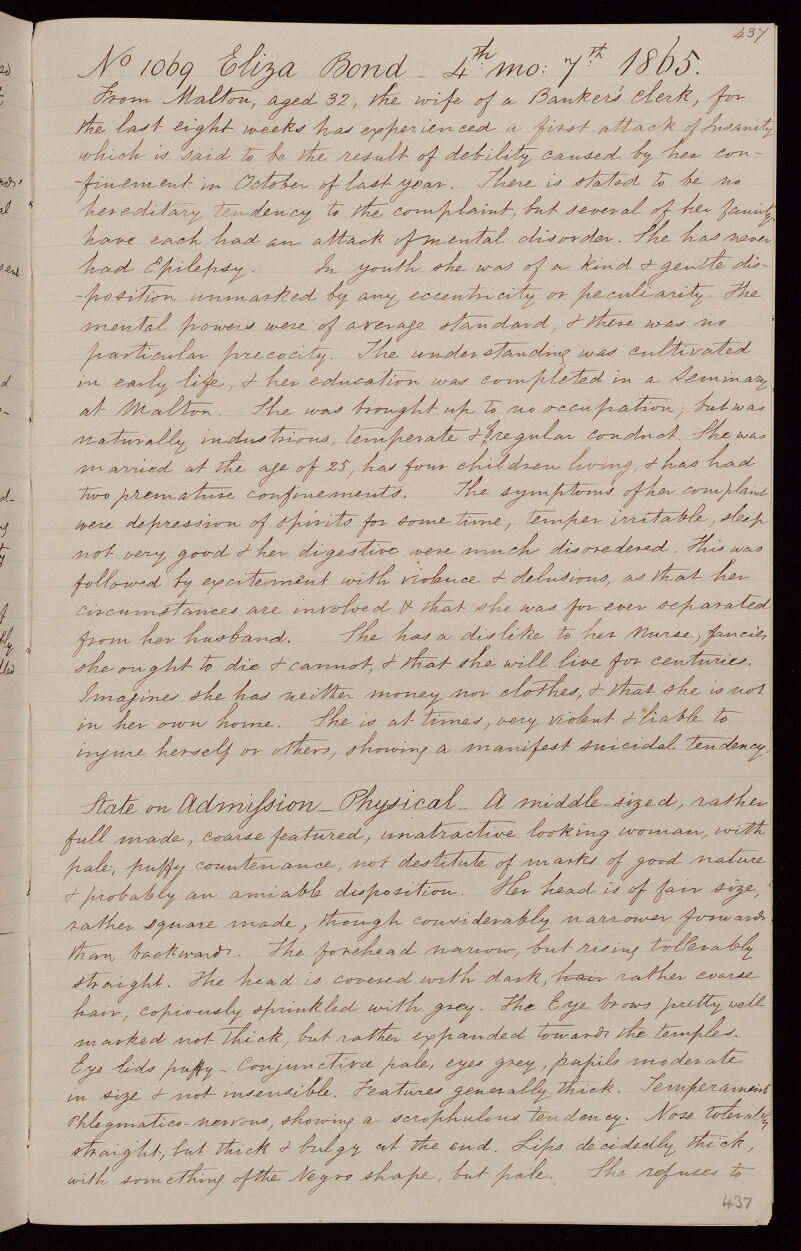 437
No 1069 Eliza Bond - 4th mo: 7th 1865.
From Malton, aged 32, the wife of a Banker's clerk, for
the last eight weeks has experienced a first attack of Insanity
which is said to be the result of debility caused by her con-
-finement in October of last year. There is stated to be no
hereditary tendency to the complaint, but several of her family
have each had an attack of mental disorder. She has never
had Epilepsy. In youth she was of a kind & gentle dis-
-position unmarked by any eccentricity or peculiarity. The
mental powers were of average standard, & there was no
particular precocity. The understanding was cultivated
in early life, & her education was completed in a Seminary
at Malton. She was brought up to no occupation; but was
naturally industrious, temperate & of regular conduct. She was
married at the age of 25, has four children living, & has had
two premature confinements. The symptoms of her complaint
were depression of spirits for some time, temper irritable, sleep
not very good & her digestive were much disoredered. This was
followed by excitement with violence & delusions, as that her
circumstances are involved & that she was for ever separated
from her husband. She has a dislike to her Nurse, fancies
she ought to die & cannot, & that she will live for centuries.
Imagines she has neither money nor clothes, & that she is not
in her own home. She is at times, very violent & liable to
injure herself or others, showing a manifest suicidal tendency.
State on Admission - Physical - A middle-sized, rather
full made, coarse featured, unatractive looking woman, with
pale, puffy countenance, not destitute of marks of good nature
& probably an amiable disposition. Her head is of fair size,
rather square made, though considerably narrower forwards
than backwards. The forehead narrow, but rising tollerably
straight. The head is covered with dark, hair rather coarse
hair, copiously sprinkled with grey. The Eye brows pretty well
marked not thick, but rather expanded towards the temples.
Eye lids puffy - Conjunctivæ pale, eyes grey, pupils moderate
in size & not insensible. Features generally thick. Temperament
Phlegmatico-nervous, showing a scrophulous tendency. Nose tolerably
straight, but thick & bulgy at the end. Lips decidedly thick,
with something of the Negro shape, but pale. She refuses to
437